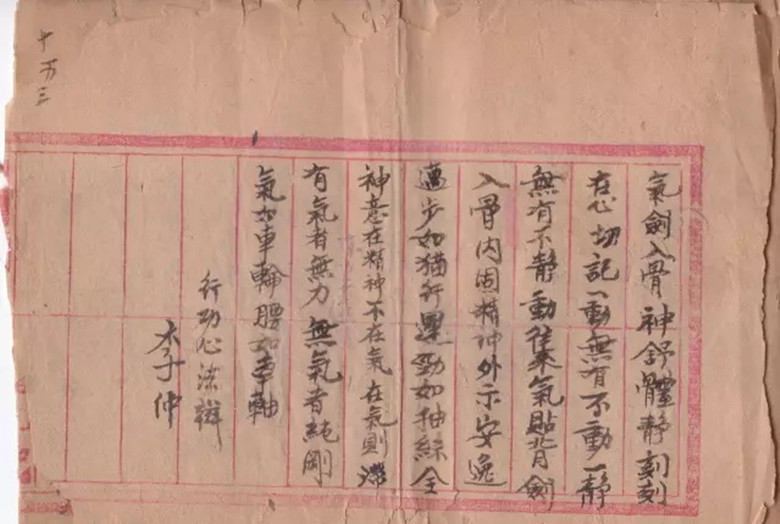 氣劍入骨神舒體靜刻刻
在心切記一動無有不動一靜
無有不靜動往來氣貼背劍
入骨內固精神外示安逸
邁步如猫行運勁如抽絲全
神意在精神不在氣在氣則滯
有氣者無力無氣者純剛
氣如車輪腰如車軸
行功心法輯
李仲
十万三